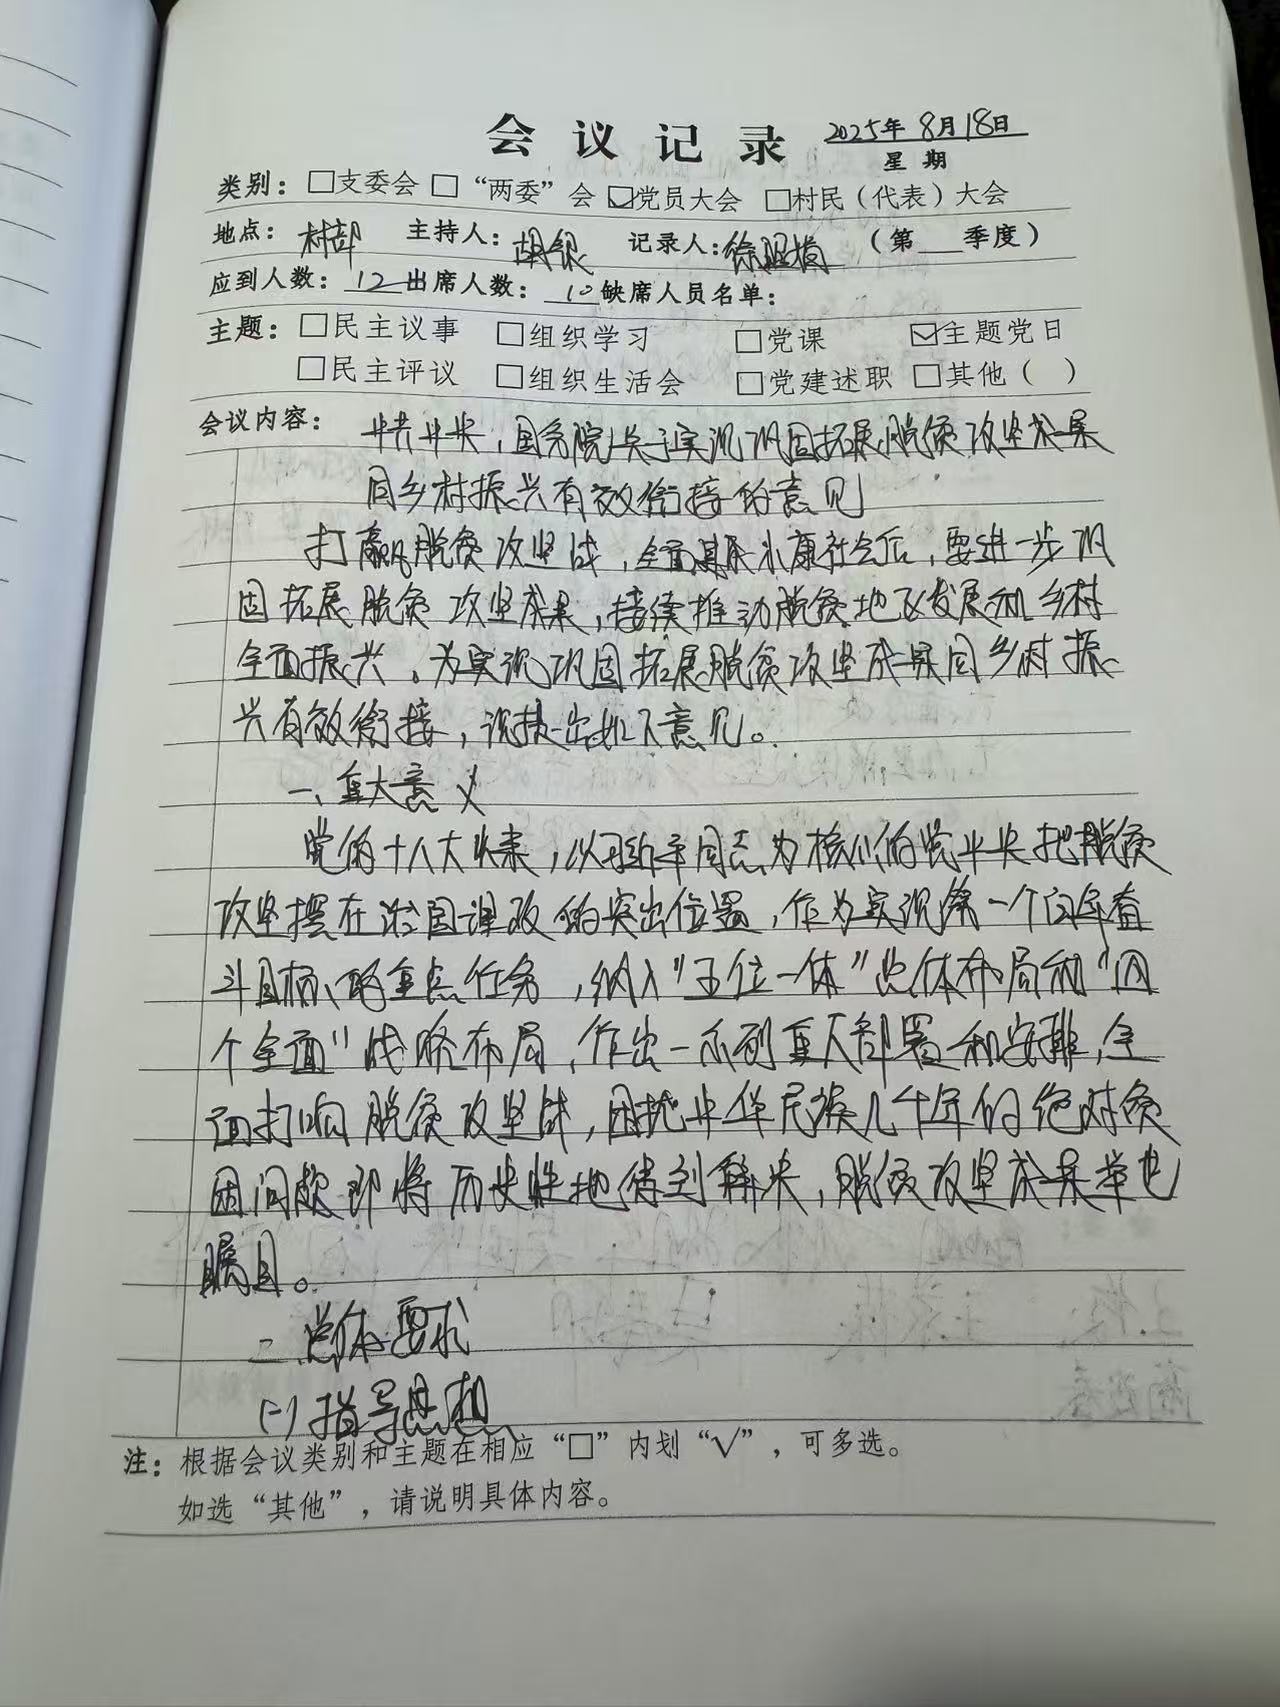 会议记录 2025年8月18日
星期
类别：□支委会 □“两委”会 ☑党员大会 □村民（代表）大会
地点：村部 主持人：胡银 记录人：徐昭梅 （第 季度）
应到人数：12出席人数：10缺席人员名单：
主题：□民主议事 □组织学习 □党课 ☑主题党日
□民主评议 □组织生活会 □党建述职 □其他（ ）
会议内容： 中共中央，国务院关于实现巩固拓展脱贫攻坚成果
同乡村振兴有效衔接的意见
打赢脱贫攻坚战，全面建成小康社会后，要进一步巩
固拓展脱贫攻坚成果，接续推动脱贫地区发展和乡村
全面振兴，为实现巩固拓展脱贫攻坚成果同乡村振
兴有效衔接，现提出如下意见。
一、重大意义
党的十八大以来，以习近平同志为核心的党中央把脱贫
攻坚摆在治国理政的突出位置，作为实现第一个百年奋
斗目标的重点任务，纳入“五位一体”总体布局和“四
个全面”战略布局，作出一系列重大部署和安排，全
面打响脱贫攻坚战，困扰中华民族几千年的绝对贫
困问题即将历史性地得到解决，脱贫攻坚成果举世
瞩目。
二、总体要求
(一)指导思想
注：根据会议类别和主题在相应“□”内划“√”，可多选。
如选“其他”，请说明具体内容。